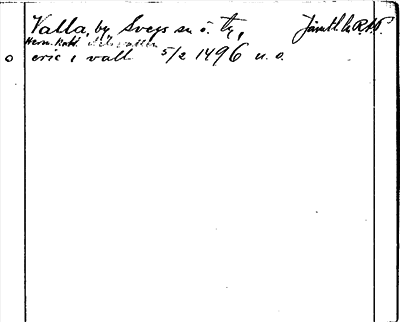 Valla, by Svegs sn ö. tg, Jämtl. l. R.A.P.
Hem. Kat.
o eric i vall 5/2 1496 u. o.